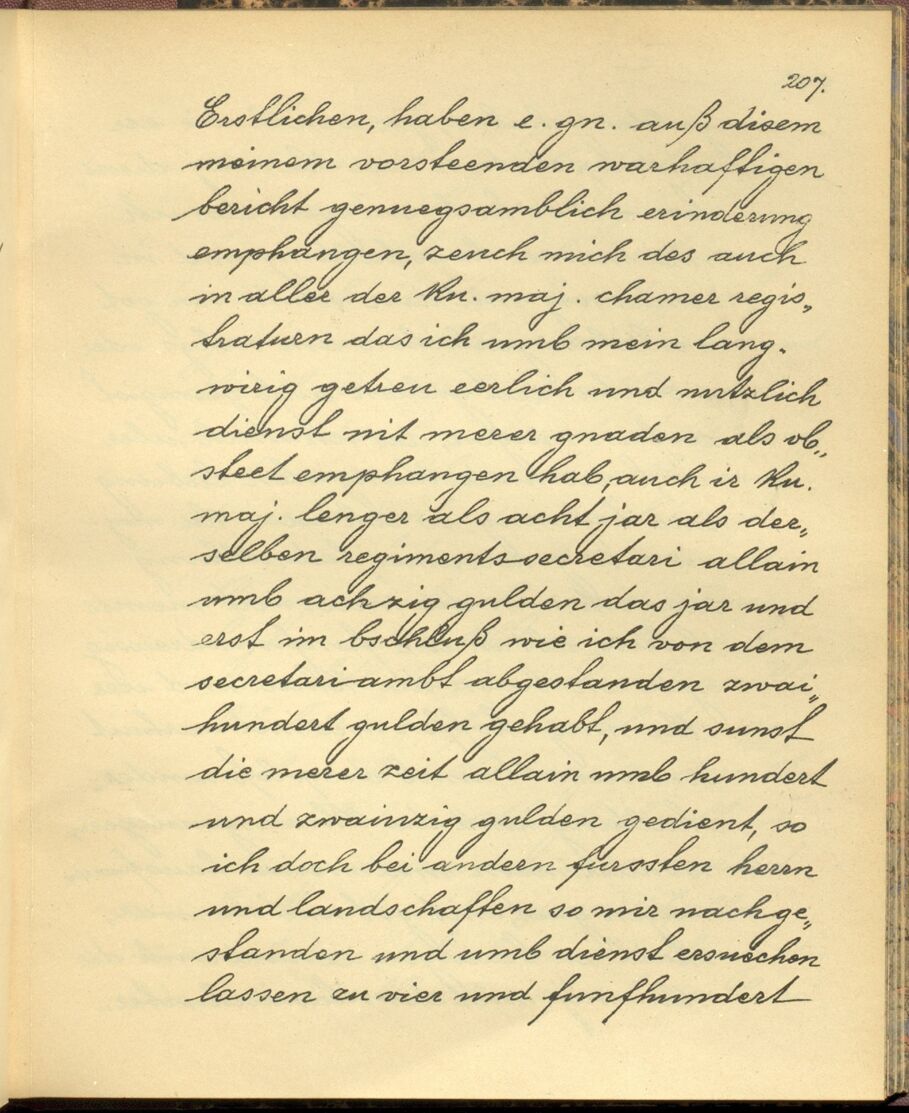 207.
Erstlichen, haben e. gn. auß disem
meinem vorsteenden warhafftigen
bericht genuegsamblich erinderung
emphangen, zeuch mich des auch
in aller der ku. maj. chamer regis„
traturn das ich umb mein lang-
wirig getreu eerlich und nutzlich
dienst nit merer gnaden als ob„
steet emphangen hab, auch ir ku.
maj. lenger als acht jar als der„
selben regimentssecretari allain
umb achzig gulden das jar und
erst im bschluß wie ich von dem
secretari ambt abgestanden zwai„
hundert gulden gehabt, und sunst
die merer zeit allain umb hundert
und zwainzig gulden gedient, so
ich doch bei andern furssten herrn
und landschafften so mir nachge„
standen und umb dienst ersuechen
lassen zu vier und funfhundert